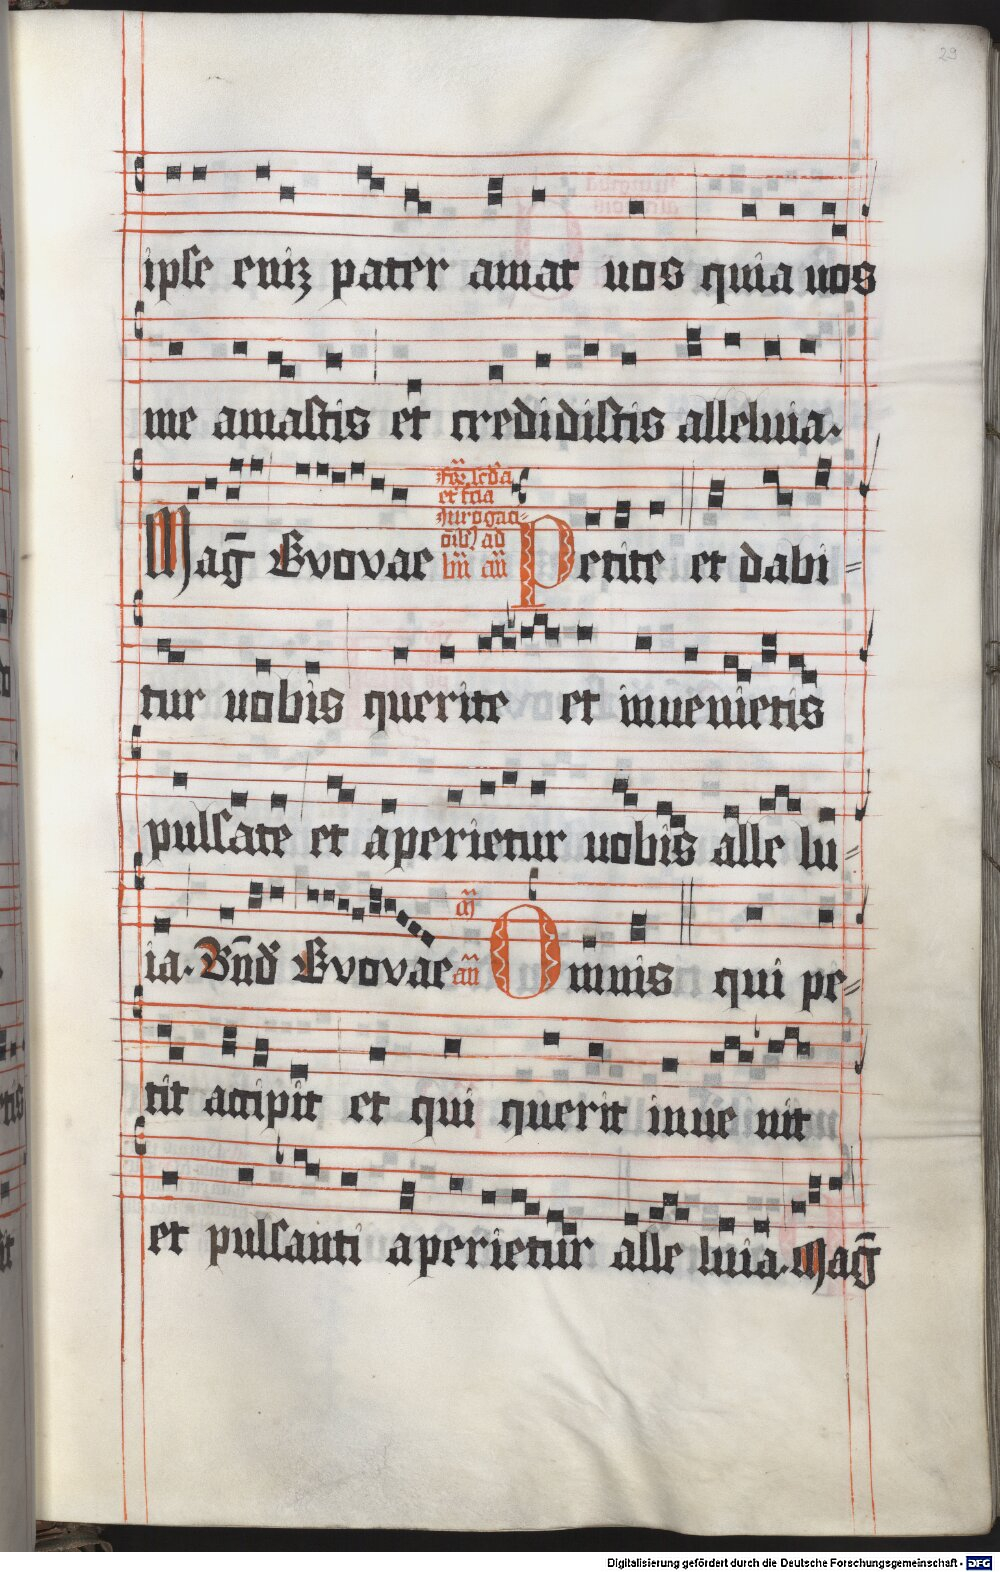 29
ipse eniʒ pater amat uos quia uos
me amastis et credidistis alleluia.
Mag̅ Evovae
et
Petite et dabi=
tur uobis querite et inuenietis
pulsate et aperietur uobis alle lu=
ia. Bn̅d Evovae an̅ Omnis qui pe=
tit accipit et qui querit inue nit
et pulsanti aperietur alle luia. Mag̅
Digitalisierung gefördert durch die Deutsche Forschungsgemeinschaft - DFG